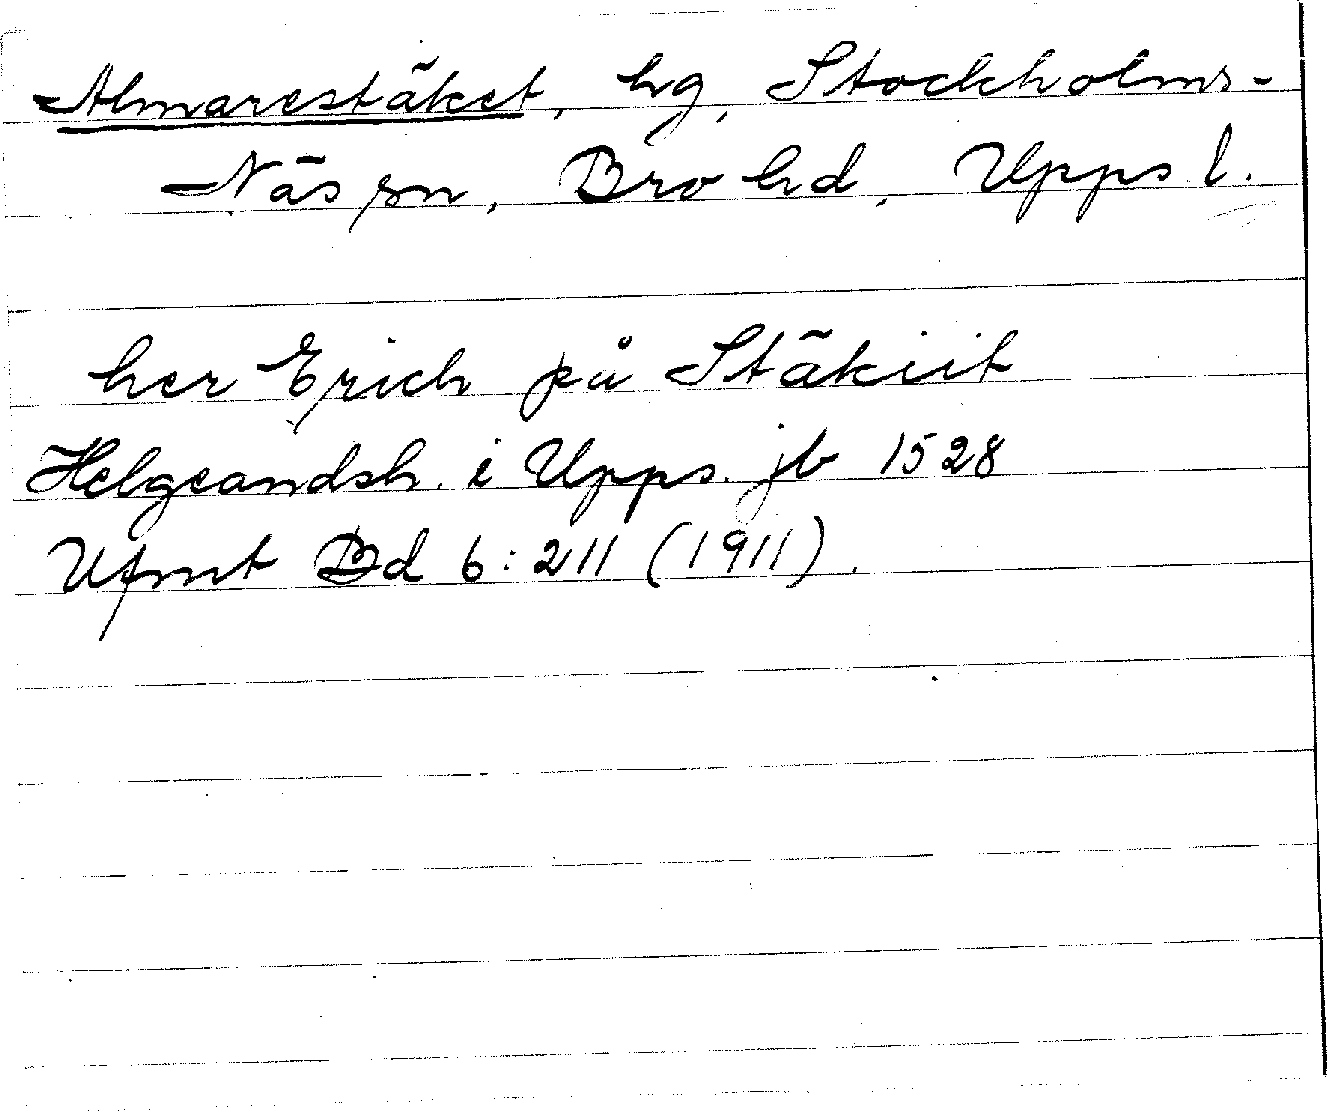 Almarestäket, hg, Stockholms-
Näs sn, Bro hd, Upps l.
her Erich på Stäkiit
Helgeandsh. i Upps. jb 1528
Ufmt Bd 6:211 (1911).